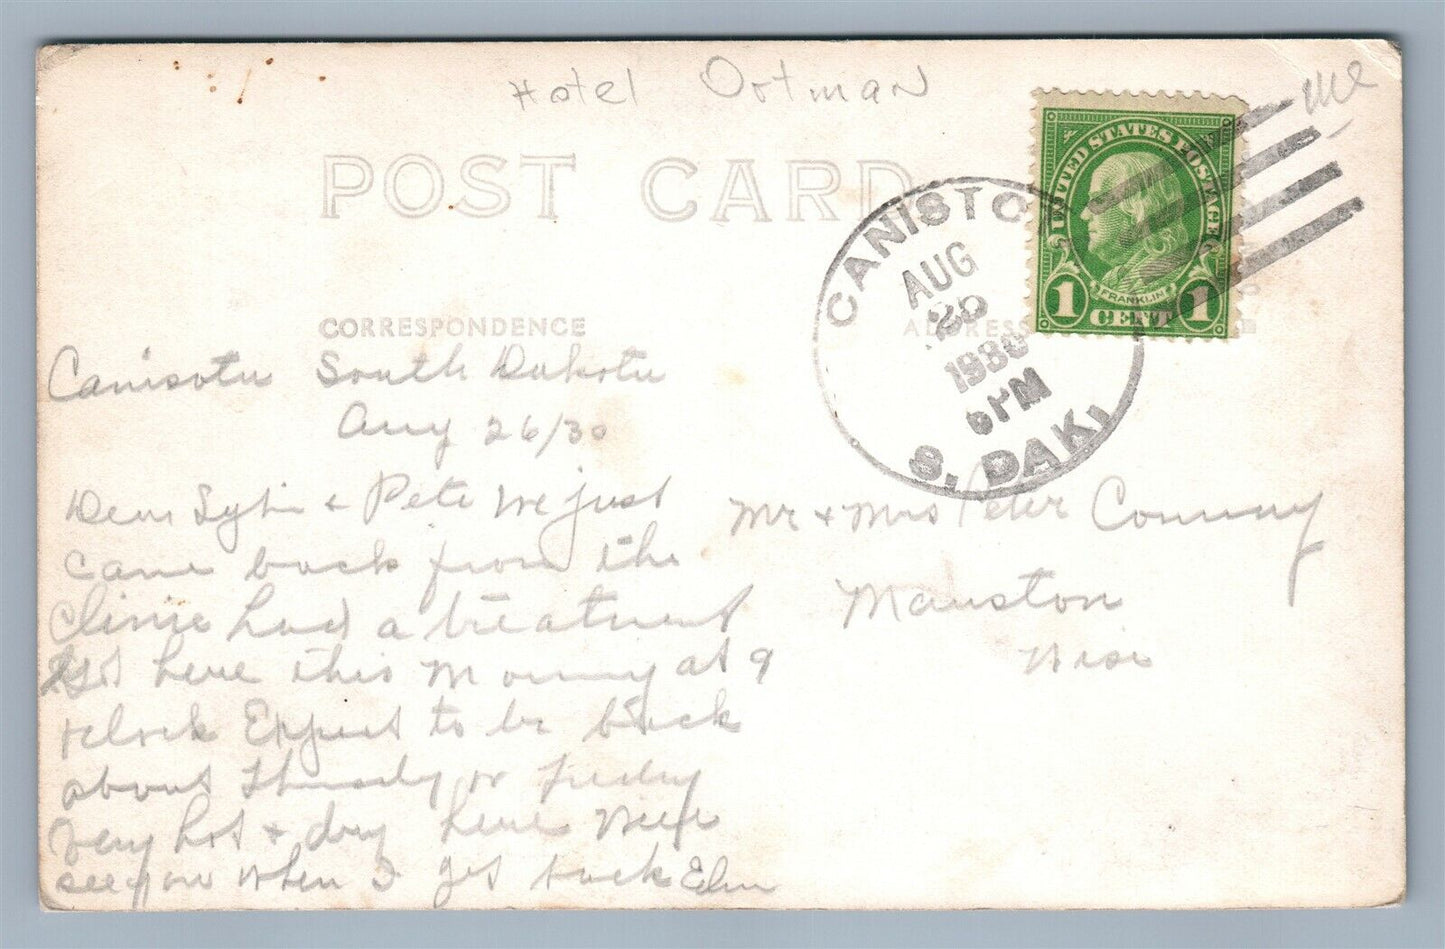 Hotel Ortman
POST CARD
UNITED STATES POSTAGE
FRANKLIN
1 CENT 1
CANISTO
AUG
1930
PM
S. DAK.
CORRESPONDENCE
ADDRESS
Canisota South Dakota
Aug 26/30
Dear Sylvi + Pete we just
came back from the
Clinic had a treatment
got here this Morning at 9
oclock Expect to be back
about Thursday or Friday
Very hot + dry here Will
see you when I get back
Mr + Mrs Peter Conway
Mauston
Wise